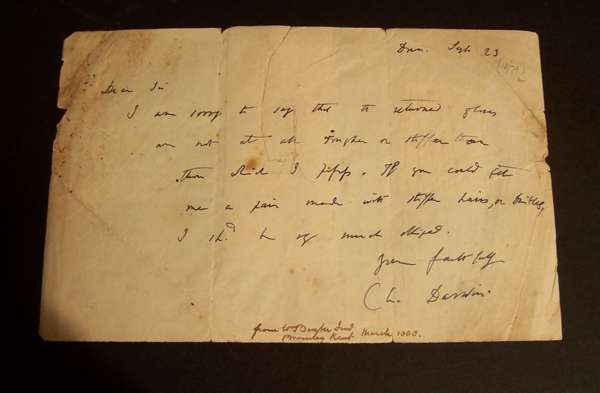 Down. Sept 23
(1879)
Dear Sir
I am sorry to say that the returned gloves
are not at all tougher or stiffer
than which I . If you could get
me a pair made with stiffer hairs, or bristles,
I shd. be very much obliged.
Yours faithfully
Ch. Darwin.
from
Bromley Kent March